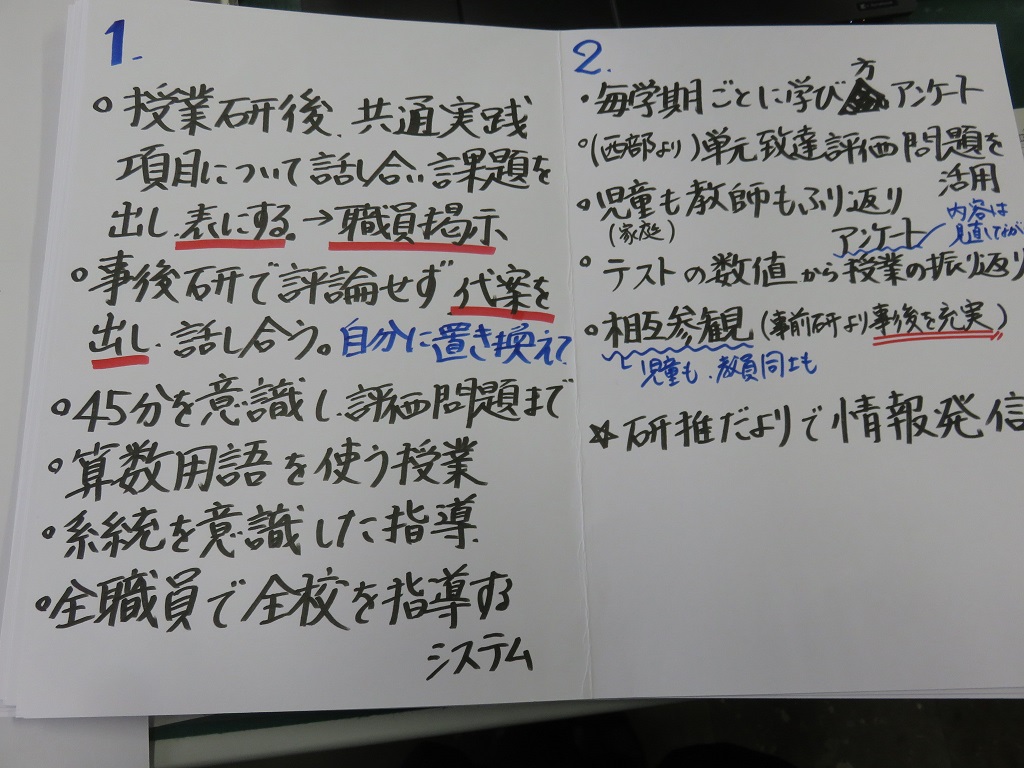 1.
○授業研後、共通実践
項目について話し合い課題を
出し表にする。→職員掲示
○事後研で評論せず代案を
出し、話し合う。自分に置き換えて
○45分を意識し、評価問題まで
○算数用語を使う授業
○系統を意識した指導
○全職員で全校を指導する
システム
2.
・毎学期ごとに学び方アンケート
○(西部より)単元致達評価問題を
活用
○児童も教師もふり返り
(家庭)
アンケート
内容は
見直しながら
○テストの数値から授業の振り返り
○相互参観(事前研より事後を充実)
児童も、教員同士も
☆研推だよりで情報発信